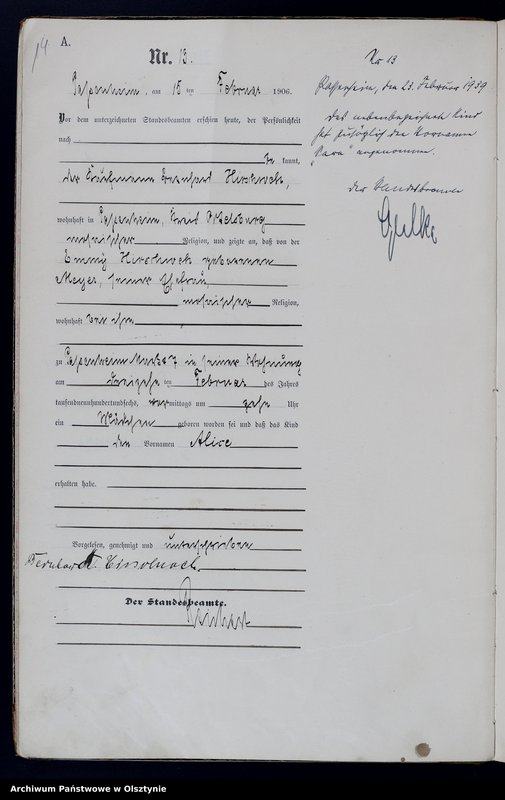 14
A.
Nr. 13.
am 15 ten Februar 1906.
Vor dem unterzeichneten Standesbeamten erschien heute, der Persönlichkeit
nach
be kannt,
der Kaufmann Bernhard
wohnhaft in Kreis Ortelsburg
mosaischer Religion, und zeigte an, daß von der
Emmy geborenen
Meyer, seiner Ehefrau,
mosaischer Religion,
wohnhaft bei ihm
zu in seiner Wohnung
am ten Februar des Jahres
tausendneunhundertundsechs, vormittags um zehn Uhr
ein Mädchen geboren worden sei und daß das Kind
den Vornamen Alice
erhalten habe.
Vorgelesen, genehmigt und unterschrieben
Bernhardt
Der Standesbeamte.
No 13
den 23. Februar 1939
Das nebenbezeichnete Kind
hat zusätzlich den Vornamen
"Sara" angenommen.
Der Standesbeamte
Archiwum Państwowe w Olsztynie